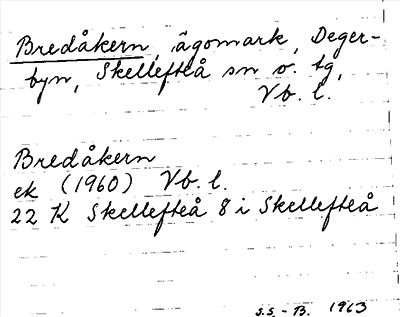 Bredåkern, ägomark, Deger-
byn, Skellefteå sn o. tg,
Vb. l.
Bredåkern
ek (1960) Vb. l.
22 K Skellefteå 8 i Skellefteå
S.S. - B. 1963